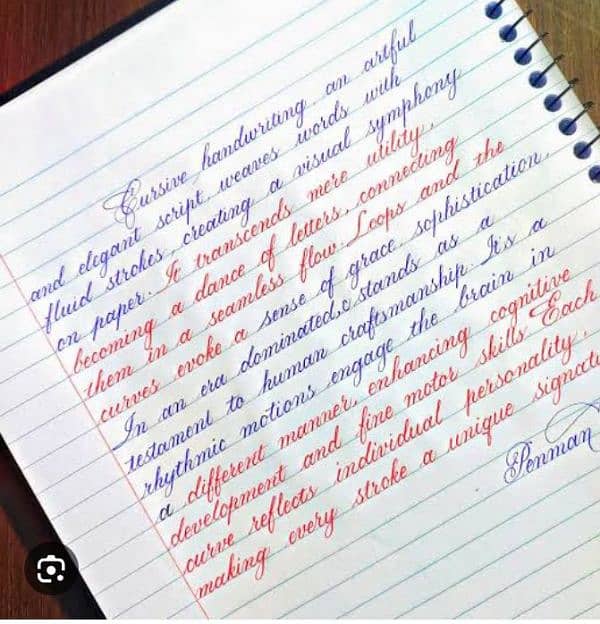 Cursive handwriting, an artful
and elegant script, weaves words with
fluid strokes, creating a visual symphony
on paper. It transcends mere utility,
becoming a dance of letters, connecting
them in a seamless flow. Loops and the
curves evoke a sense of grace, sophistication.
In an era dominated, c stands as a
testament to human craftsmanship. It's a
rhythmic motions engage the brain in
a different manner, enhancing cognitive
development and fine motor skills Each
curve reflects individual personality,
making every stroke a unique signatu
Penman